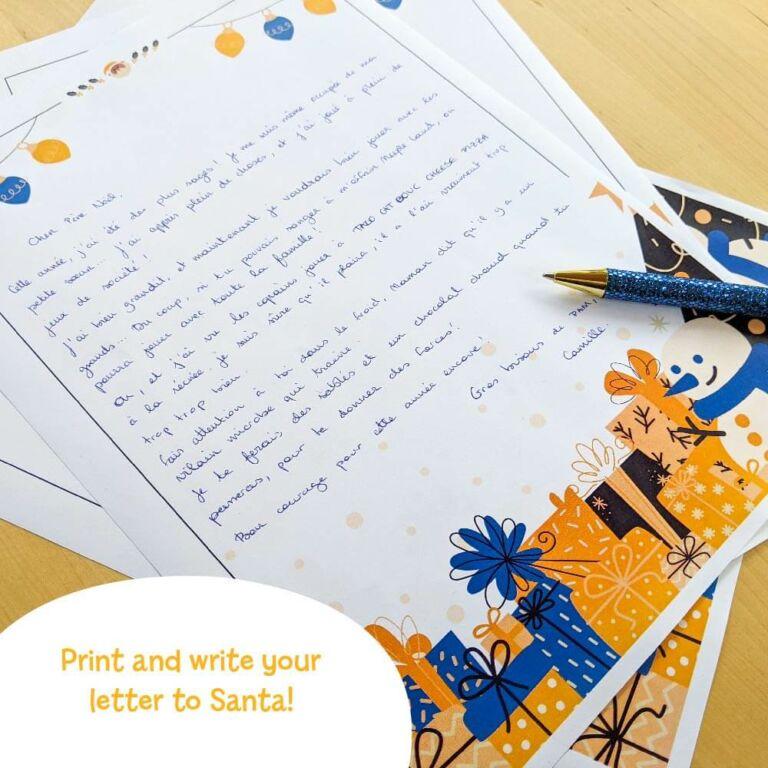 Cher Père Noël,
Cette année, j'ai été des plus sages! Je me suis même occupée de ma
petite sœur... J'ai appris plein de choses, et j'ai joué à plein de
jeux de société!
J'ai bien grandit, et maintenant je voudrais bien jouer avec les
grands... Du coup, si tu pouvais songer à m'offrir Meeple Land, on
pourra jouer avec toute la famille!
Oh, et j'ai vu les copains jouer à TACO CAT BOUC CHEESE PIZZA
à la récrée je suis sûre qu'il plaira, il a l'air vraiment trop
trop trop bien.
Fais attention à toi dans le froid, Maman dit qu'il y a un
vilain microbe qui traine.
Je te ferais des sablés et un chocolat chaud quand tu
passeras, pour te donner des forces!
Bon courage pour cette année encore!
Gros bisous de PAM,
Camille.
Print and write your
letter to Santa!